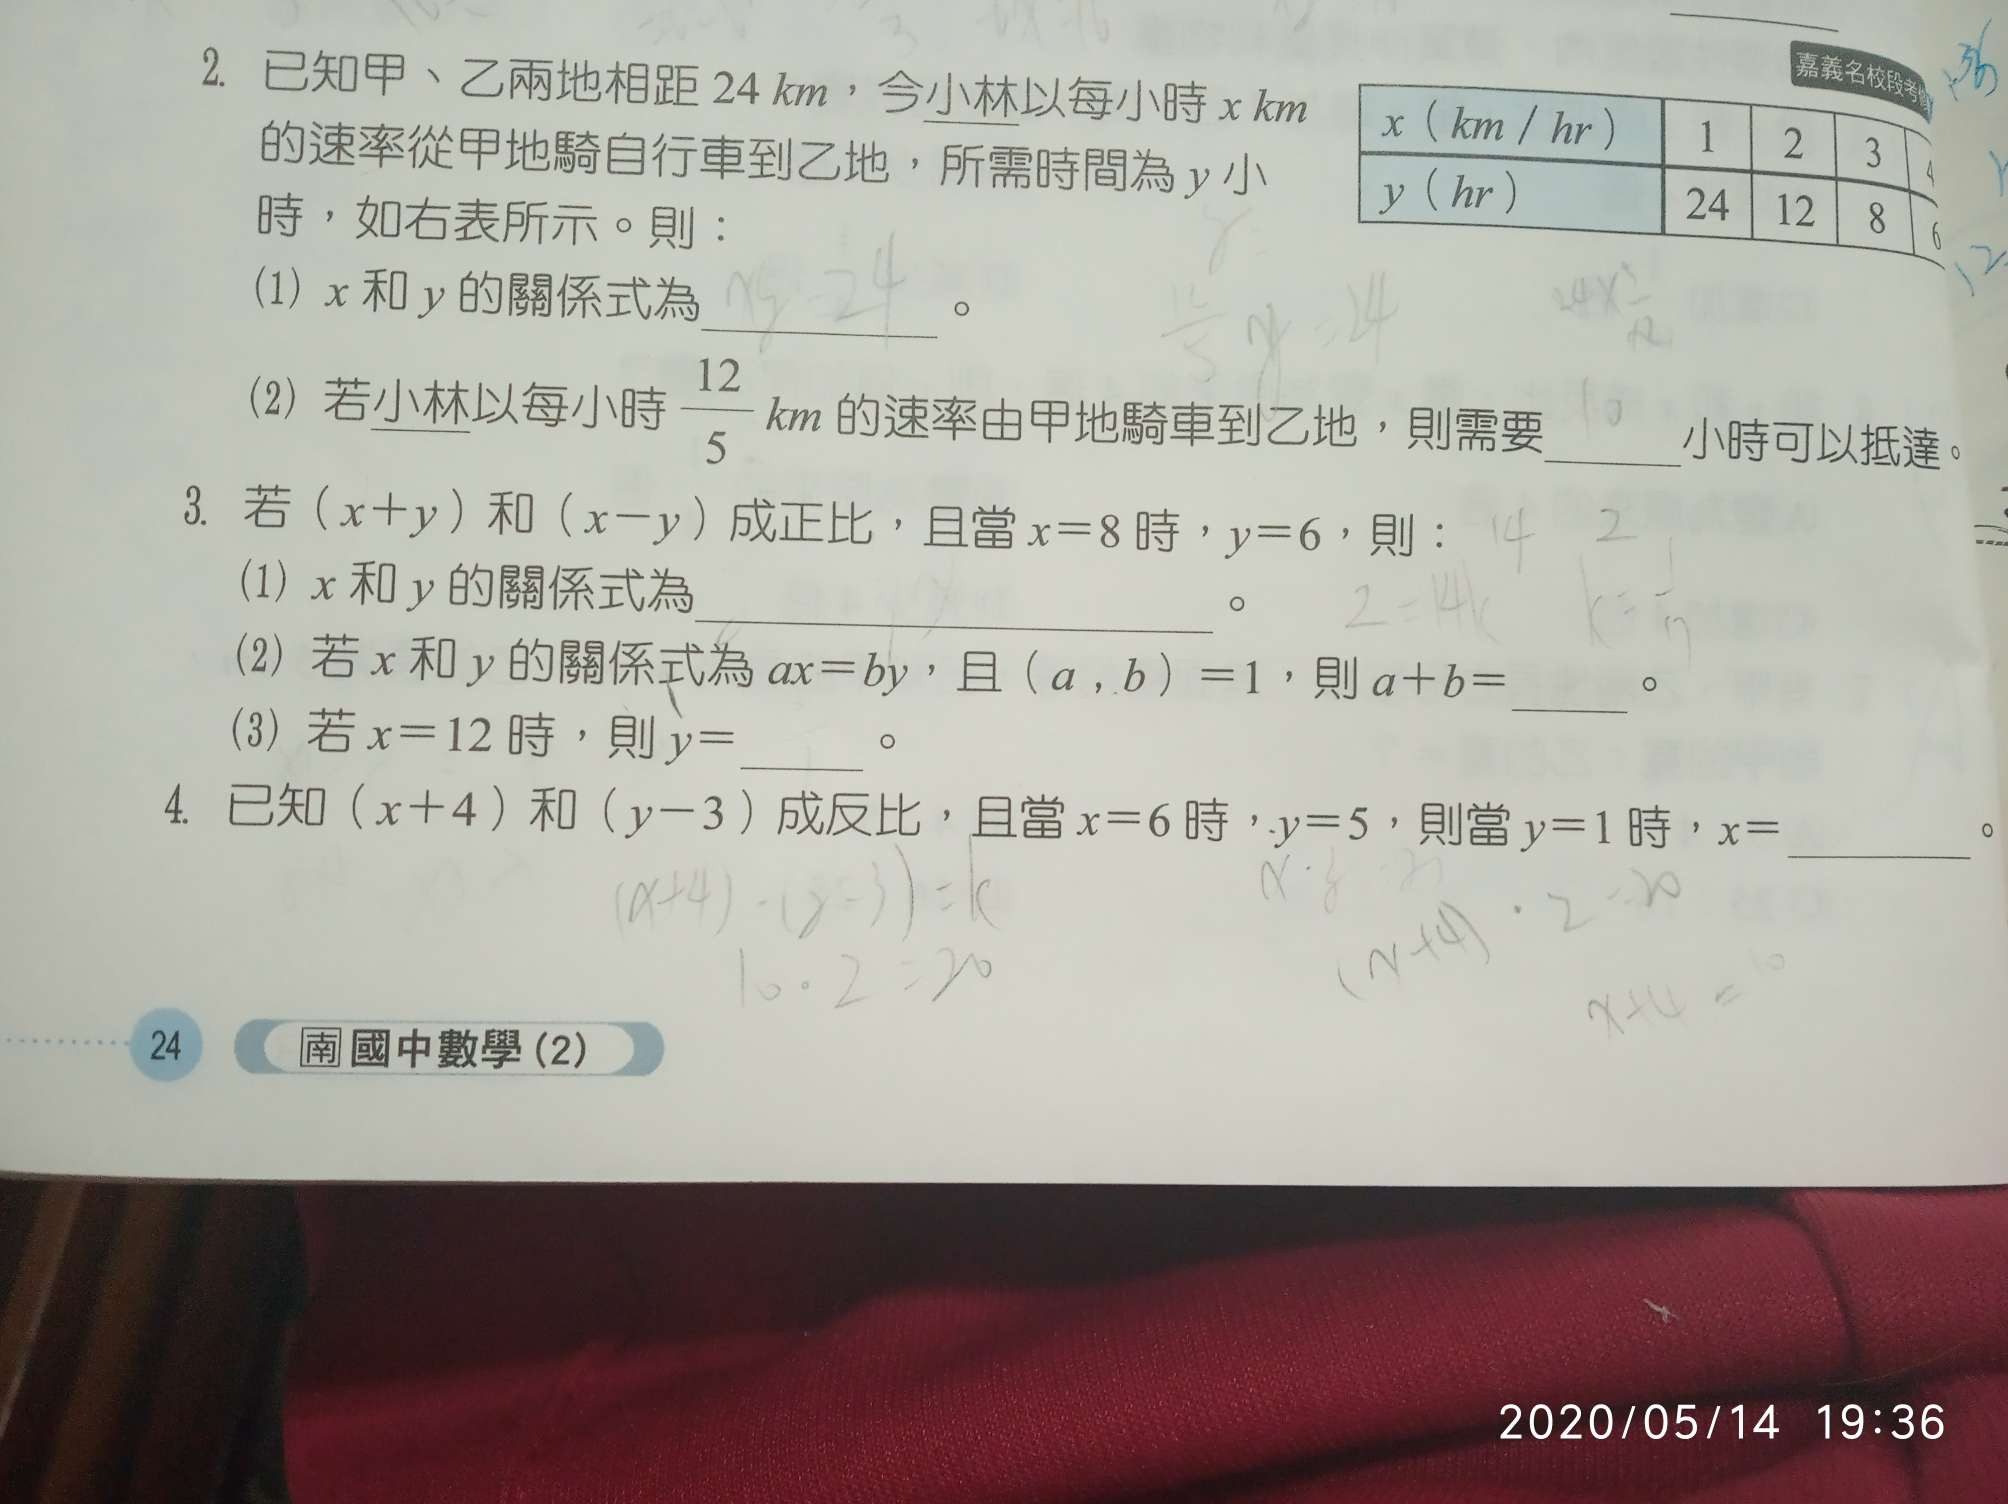 嘉義名校段考
2. 已知甲、乙兩地相距 24 km，今小林以每小時 x km
的速率從甲地騎自行車到乙地，所需時間為 y 小
時，如右表所示。則：
x（km / hr） 1 2 3 4
y（hr） 24 12 8 6
(1) x 和 y 的關係式為 xy=24 。
12/5 y =24
(2) 若小林以每小時 12/5 km 的速率由甲地騎車到乙地，則需要 10 小時可以抵達。
3. 若（x＋y）和（x－y）成正比，且當 x＝8 時，y＝6，則： 14 2
2=14k k=1/7
(1) x 和 y 的關係式為 。
(2) 若 x 和 y 的關係式為 ax＝by，且（a , b）＝1，則 a＋b＝ 。
(3) 若 x＝12 時，則 y＝ 。
4. 已知（x＋4）和（y－3）成反比，且當 x＝6 時，y＝5，則當 y＝1 時，x＝ 。
(x+4)·(y-3)=k
(x+4)·2=20
10·2=20
x+4=10
24 南 國中數學(2)
2020/05/14 19:36